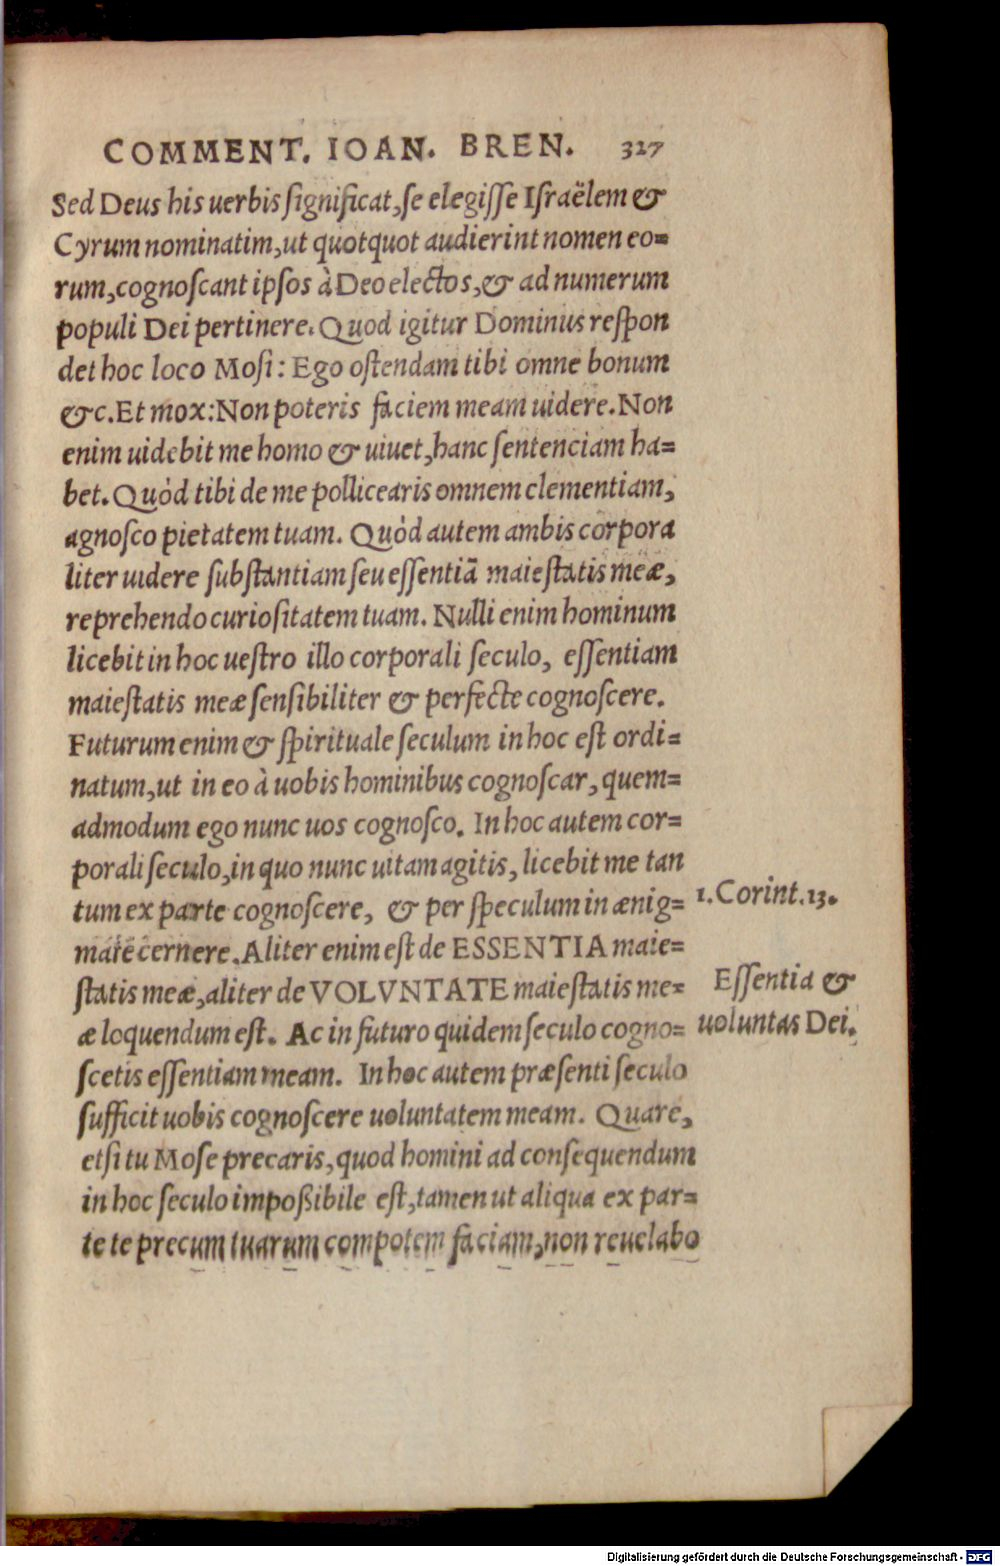 COMMENT. IOAN. BREN. 327
Sed Deus his uerbis significat, se elegisse Israëlem &
Cyrum nominatim, ut quotquot audierint nomen eo=
rum, cognoscant ipsos à Deo electos, & ad numerum
populi Dei pertinere. Quod igitur Dominus respon
det hoc loco Mosi: Ego ostendam tibi omne bonum
&c. Et mox: Non poteris faciem meam uidere. Non
enim uidebit me homo & uiuet, hanc sentenciam ha=
bet. Quòd tibi de me pollicearis omnem clementiam,
agnosco pietatem tuam. Quòd autem ambis corpora
liter uidere substantiam seu essentiā maiestatis meæ,
reprehendo curiositatem tuam. Nulli enim hominum
licebit in hoc uestro illo corporali seculo, essentiam
maiestatis meæ sensibiliter & perfecte cognoscere.
Futurum enim & spirituale seculum in hoc est ordi=
natum, ut in eo à uobis hominibus cognoscar, quem=
admodum ego nunc uos cognosco. In hoc autem cor=
porali seculo, in quo nunc uitam agitis, licebit me tan
tum ex parte cognoscere, & per speculum in ænig=
mate cernere. Aliter enim est de ESSENTIA maie=
statis meæ, aliter de VOLVNTATE maiestatis me=
æ loquendum est. Ac in futuro quidem seculo cogno=
scetis essentiam meam. In hoc autem præsenti seculo
sufficit uobis cognoscere uoluntatem meam. Quare,
etsi tu Mose precaris, quod homini ad consequendum
in hoc seculo impoßibile est, tamen ut aliqua ex par=
te te precum tuarum compotem faciam, non reuelabo
1. Corint. 13.
Essentia &
uoluntas Dei.
Digitalisierung gefördert durch die Deutsche Forschungsgemeinschaft - DFG